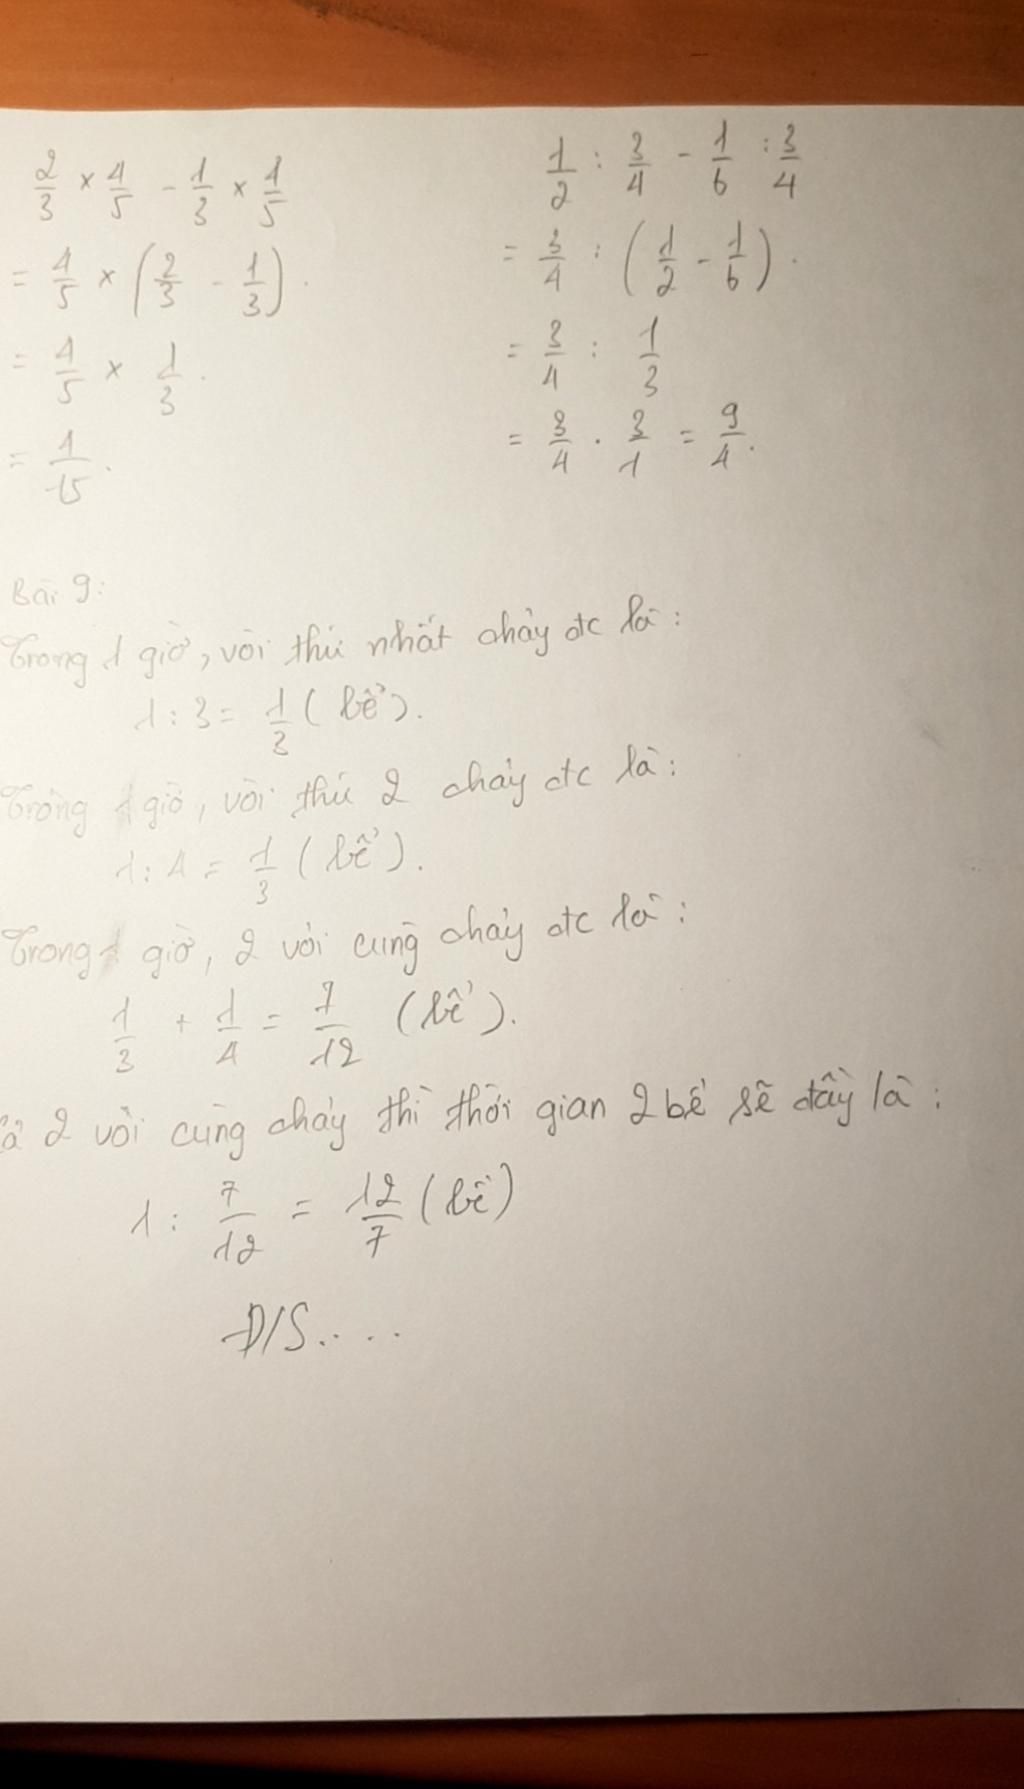 2/3 × 4/5 - 1/3 × 4/5
= 4/5 × (2/3 - 1/3).
= 4/5 × 1/3.
= 4/15.
1/2 : 3/4 - 1/6 : 3/4
= 3/4 : (1/2 - 1/6).
= 3/4 : 1/3
= 3/4 . 3/1 = 9/4.
Bài 9:
Trong 1 giờ, vòi thứ nhất chảy đc là:
1 : 3 = 1/3 (bể).
Trong 1 giờ, vòi thứ 2 chảy đc là:
1 : 4 = 1/3 (bể).
Trong 1 giờ, 2 vòi cùng chảy đc là:
1/3 + 1/4 = 7/12 (bể).
cả 2 vòi cùng chảy thì thời gian 2 bể sẽ đầy là:
1 : 7/12 = 12/7 (bể)
Đ/S....